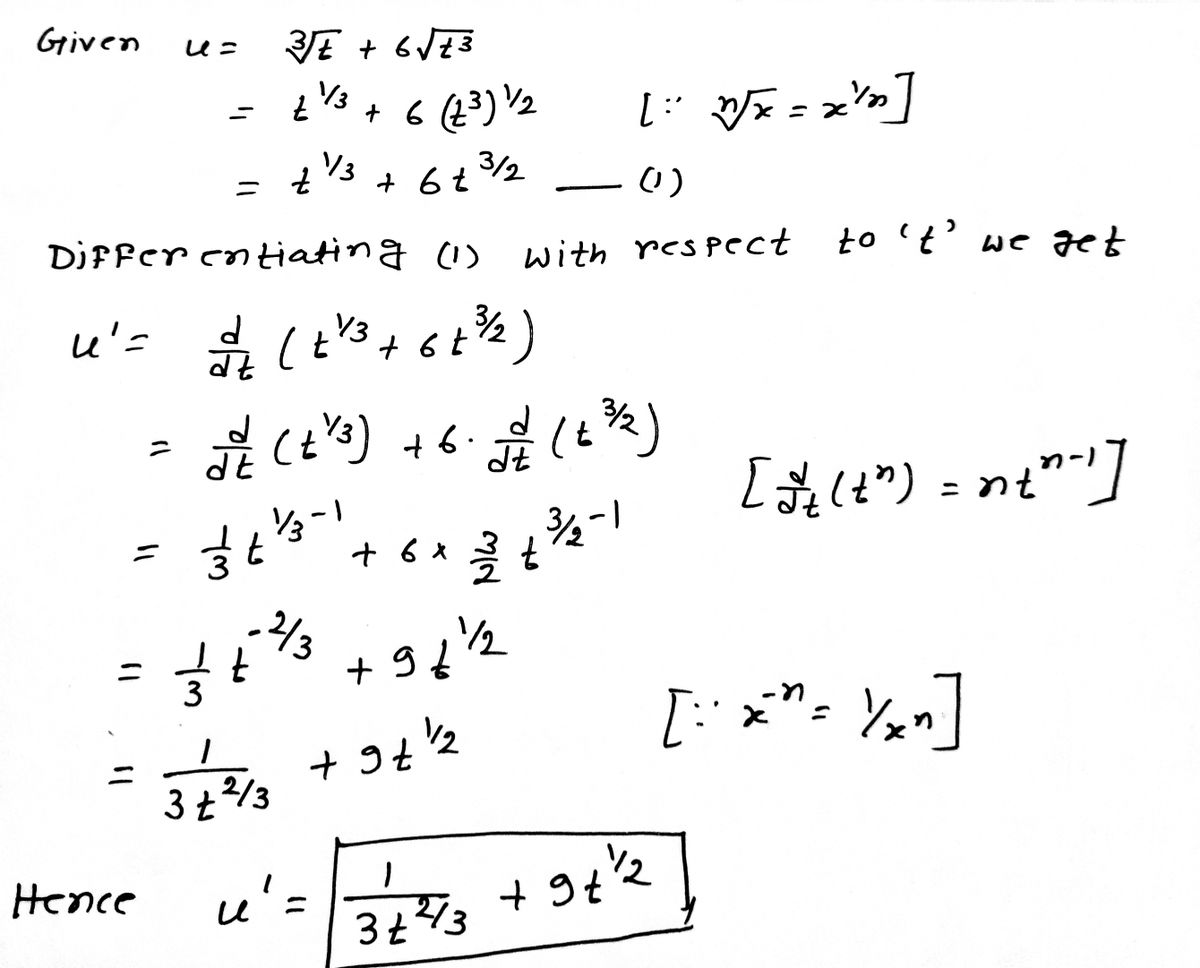 Given u = ∛t + 6√t³
= t^1/3 + 6 (t³)^1/2 [∵ ⁿ√x = x^1/n]
= t^1/3 + 6t^3/2 — (1)
Differentiating (1) with respect to 't' we get
u' = d/dt (t^1/3 + 6t^3/2)
= d/dt (t^1/3) + 6 · d/dt (t^3/2)
[d/dt (tⁿ) = nt^n-1]
= 1/3 t^1/3-1 + 6 × 3/2 t^3/2-1
= 1/3 t^-2/3 + 9t^1/2
[∵ x^-n = 1/xⁿ]
= 1/3t^2/3 + 9t^1/2
Hence u' = 1/3t^2/3 + 9t^1/2